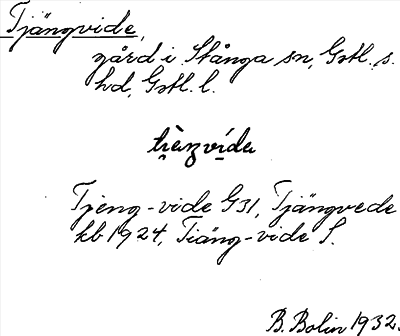 Tjängvide,
gård i Stånga sn, Gotl. s.
hd, Gotl. l.
Tjeng-vide G31, Tjängvede
kb 1924, Tiäng-vide S.
B. Bolin 1932.